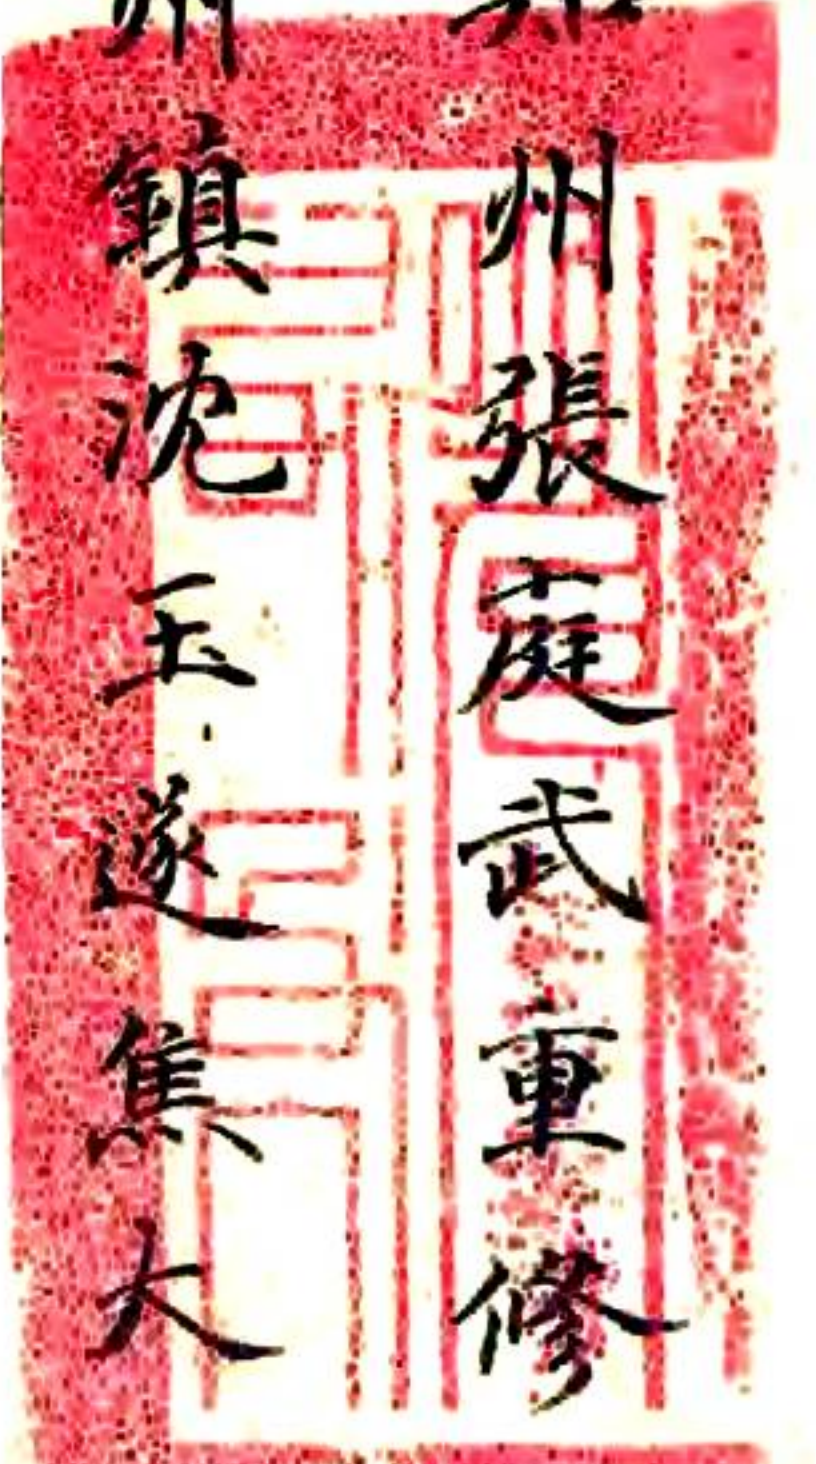 州張庭武重修
州鎮沈玉遂焦大